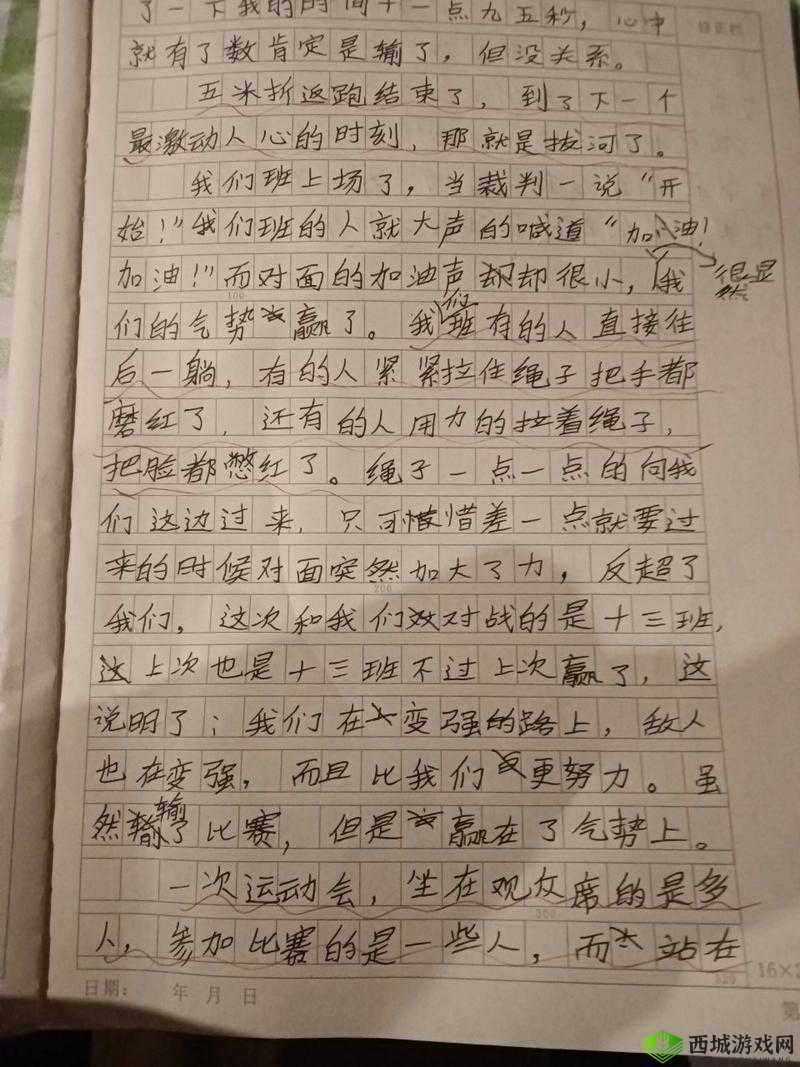 了一下我的时间十一点九五秒，心中
就有了数肯定是输了，但没关系。
五米折返跑结束了，到了下一个
最激动人心的时刻，那就是拔河了。
我们班上场了，当裁判一说“开
始！”我们班的人就大声的喊道“加油！
加油！”而对面的加油声却很小，很显然我
们的气势赢了。我们班有的人直接往
后一躺，有的人紧紧拉住绳子把手都
磨红了，还有的人用力的拉着绳子，
把脸都憋红了。绳子一点一点的向我
们这边过来，只可惜差一点就要过
来的时候对面突然加大了力，反超了
我们，这次和我们对战的是十三班，
上次也是十三班不过上次赢了，这
说明了：我们在变强的路上，敌人
也在变强，而且比我们更努力。虽
然输了比赛，但是赢在了气势上。
一次运动会，坐在观众席的是多
人，参加比赛的是一些人，而站在
100
200
300
320
16×2
日期： 年 月 日
第
西城游戏网